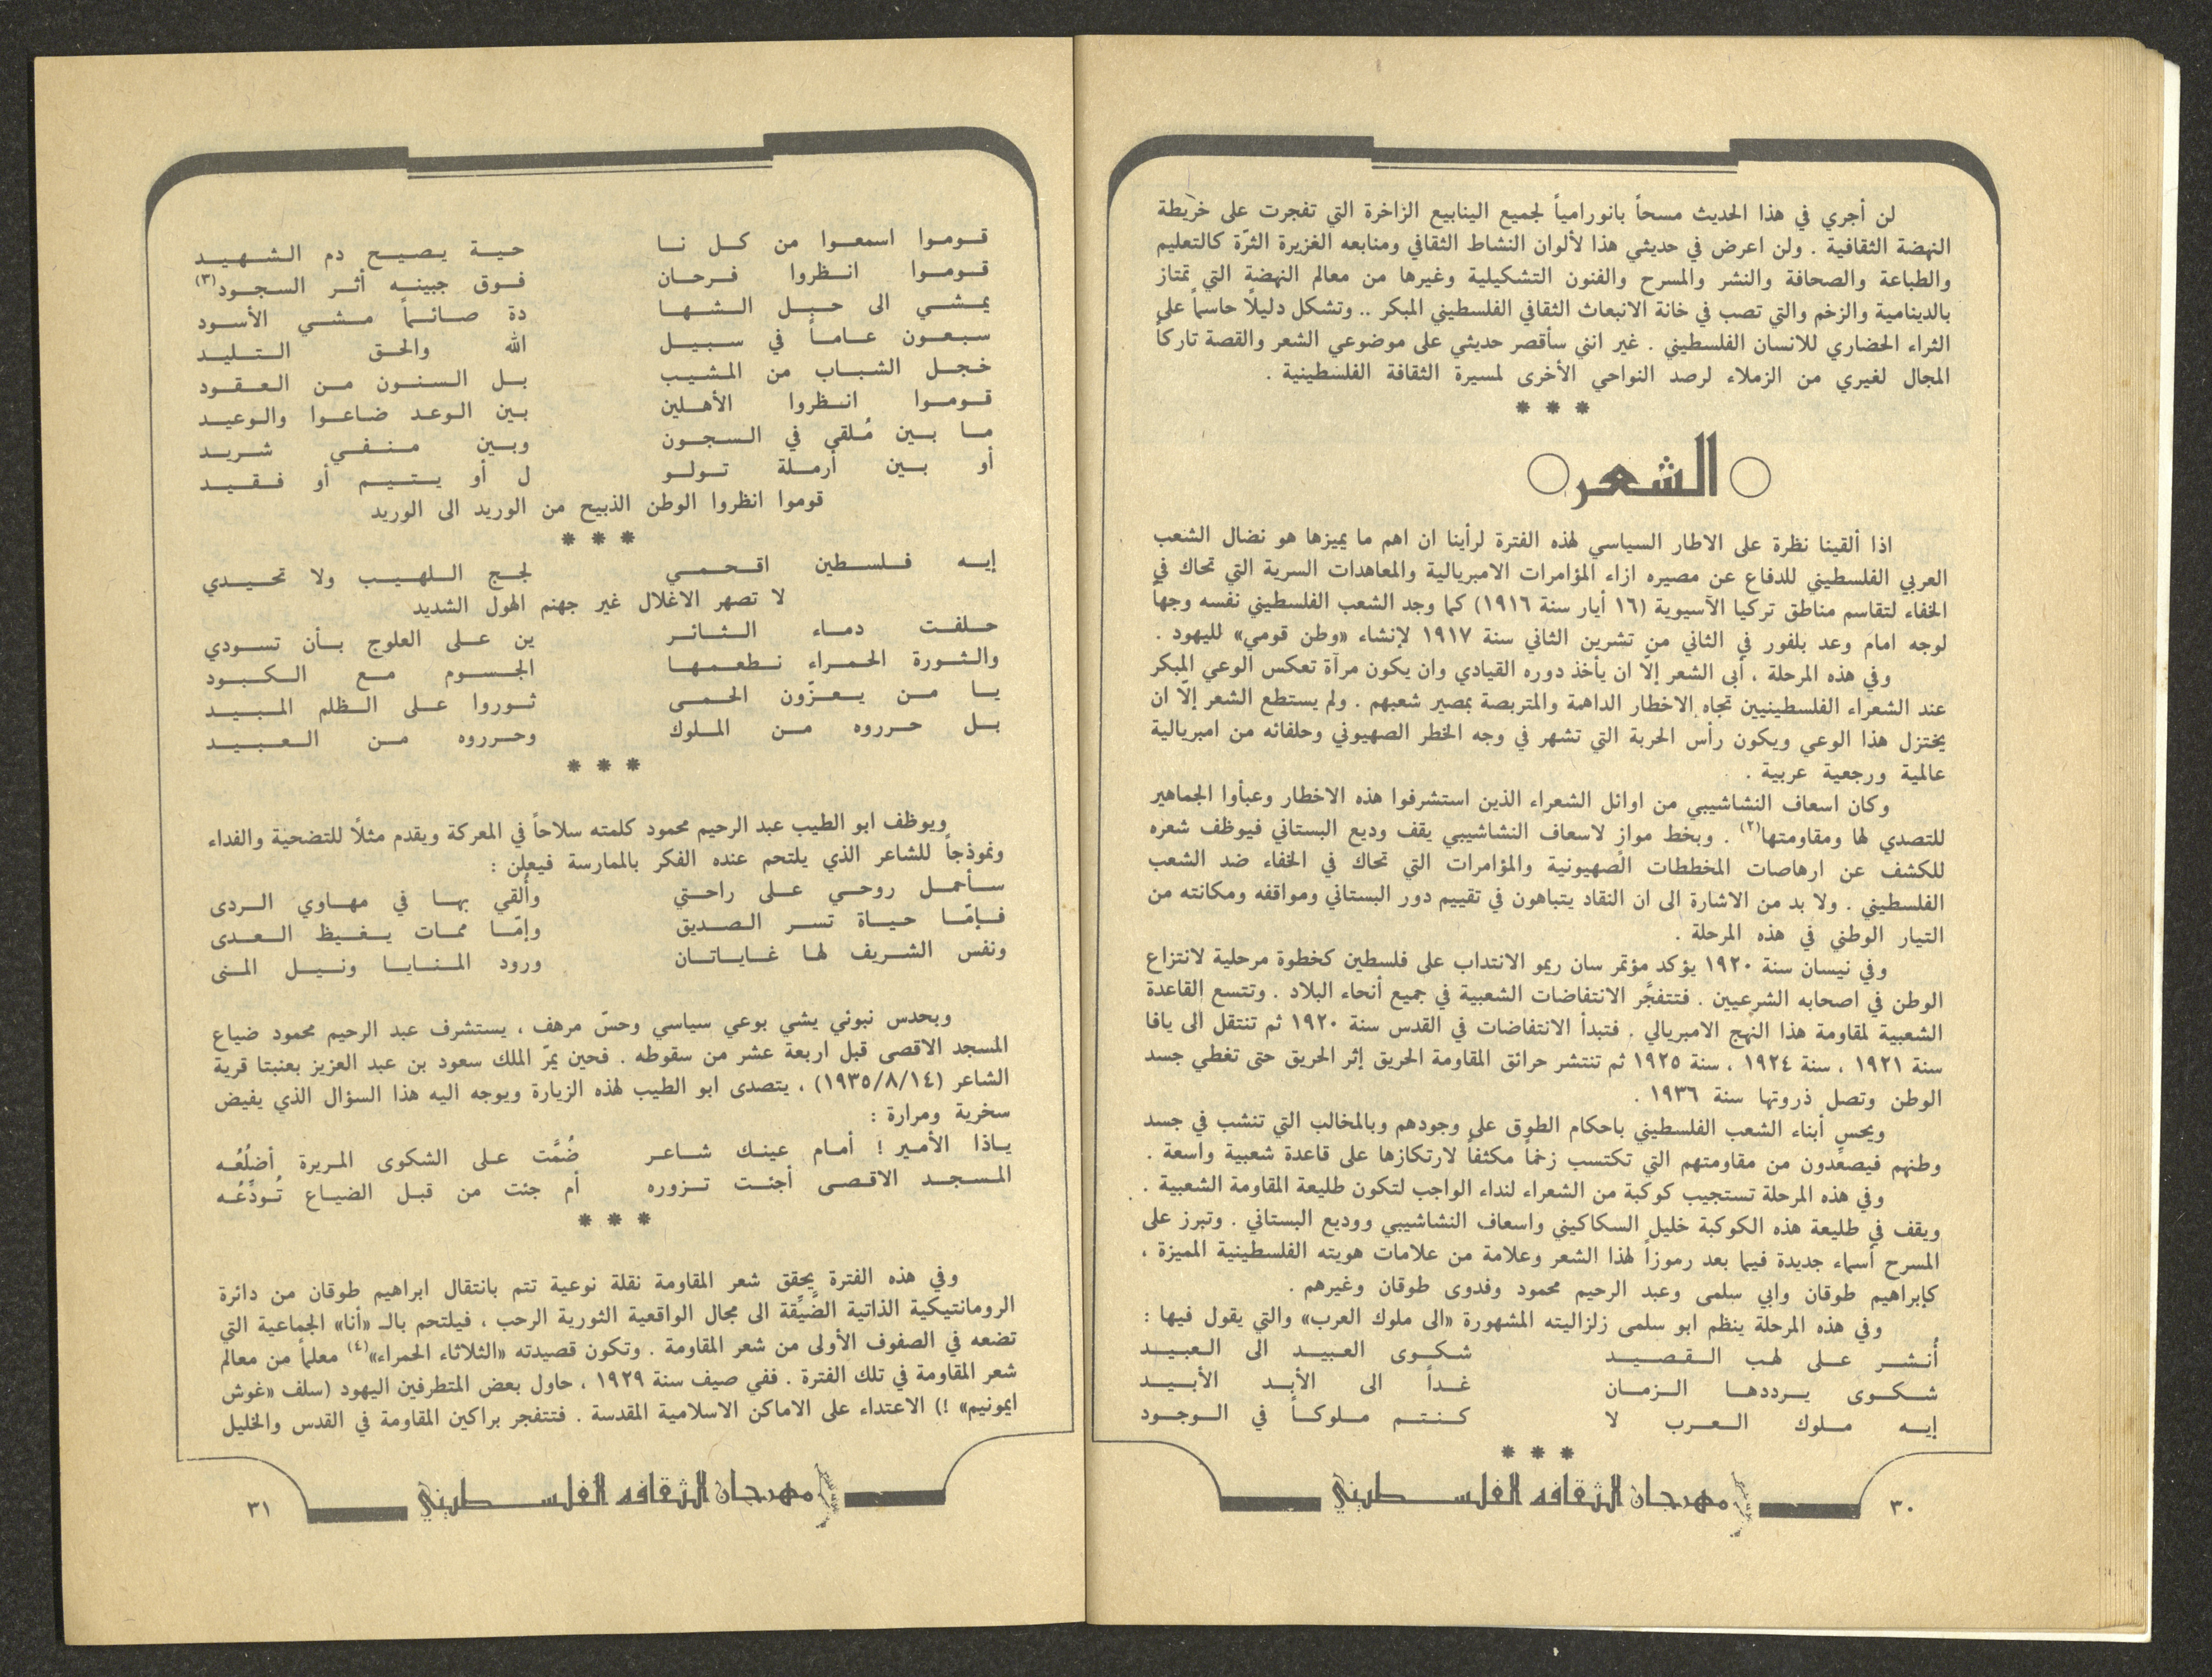 لن أجري في هذا الحديث مسحاً بانورامياً لجميع الينابيع الزاخرة التي تفجرت على خريطة
النهضة الثقافية . ولن اعرض في حديثي هذا لألوان النشاط الثقافي ومنابعه الغزيرة الثرّة كالتعليم
والطباعة والصحافة والنشر والمسرح والفنون التشكيلية وغيرها من معالم النهضة التي تمتاز
بالدينامية والزخم والتي تصب في خانة الانبعاث الثقافي الفلسطيني المبكر .. وتشكل دليلاً حاسماً على
الثراء الحضاري للانسان الفلسطيني . غير انني سأقصر حديثي على موضوعي الشعر والقصة تاركاً
المجال لغيري من الزملاء لرصد النواحي الأخرى لمسيرة الثقافة الفلسطينية .
* * *
○ الشعر ○
اذا ألقينا نظرة على الاطار السياسي لهذه الفترة لرأينا ان اهم ما يميزها هو نضال الشعب
العربي الفلسطيني للدفاع عن مصيره ازاء المؤامرات الامبريالية والمعاهدات السرية التي تحاك في
الخفاء لتقاسم مناطق تركيا الآسيوية (١٦ أيار سنة ١٩١٦) كما وجد الشعب الفلسطيني نفسه وجهاً
لوجه امام وعد بلفور في الثاني من تشرين الثاني سنة ١٩١٧ لإنشاء «وطن قومي» لليهود .
وفي هذه المرحلة ، أبى الشعر إلاّ ان يأخذ دوره القيادي وان يكون مرآة تعكس الوعي المبكر
عند الشعراء الفلسطينيين تجاه الاخطار الداهمة والمتربصة بمصير شعبهم . ولم يستطع الشعر إلاّ ان
يختزل هذا الوعي ويكون رأس الحربة التي تشهر في وجه الخطر الصهيوني وحلفائه من امبريالية
عالمية ورجعية عربية .
وكان اسعاف النشاشيبي من اوائل الشعراء الذين استشرفوا هذه الاخطار وعبأوا الجماهير
للتصدي لها ومقاومتها(٢) . وبخط موازٍ لاسعاف النشاشيبي يقف وديع البستاني فيوظف شعره
للكشف عن ارهاصات المخططات الصهيونية والمؤامرات التي تحاك في الخفاء ضد الشعب
الفلسطيني . ولا بد من الاشارة الى ان النقاد يتباهون في تقييم دور البستاني ومواقفه ومكانته من
التيار الوطني في هذه المرحلة .
وفي نيسان سنة ١٩٢٠ يؤكد مؤتمر سان ريمو الانتداب على فلسطين كخطوة مرحلية لانتزاع
الوطن في اصحابه الشرعيين . فتتفجَّر الانتفاضات الشعبية في جميع أنحاء البلاد . وتتسع القاعدة
الشعبية لمقاومة هذا النهج الامبريالي . فتبدأ الانتفاضات في القدس سنة ١٩٢٠ ثم تنتقل الى يافا
سنة ١٩٢١ ، سنة ١٩٢٤ ، سنة ١٩٢٥ ثم تنتشر حرائق المقاومة الحريق إثر الحريق حتى تغطي جسد
الوطن وتصل ذروتها سنة ١٩٣٦ .
ويحس أبناء الشعب الفلسطيني باحكام الطوق على وجودهم وبالمخالب التي تنشب في جسد
وطنهم فيصعِّدون من مقاومتهم التي تكتسب زخماً مكثفاً لارتكازها على قاعدة شعبية واسعة .
وفي هذه المرحلة تستجيب كوكبة من الشعراء لنداء الواجب لتكون طليعة المقاومة الشعبية .
ويقف في طليعة هذه الكوكبة خليل السكاكيني واسعاف النشاشيبي ووديع البستاني . وتبرز على
المسرح أسماء جديدة فيما بعد رموزاً لهذا الشعر وعلامة من علامات هويته الفلسطينية المميزة ،
كإبراهيم طوقان وابي سلمى وعبد الرحيم محمود وفدوى طوقان وغيرهم .
وفي هذه المرحلة ينظم ابو سلمى زلزاليته المشهورة «الى ملوك العرب» والتي يقول فيها :
أُنشر على لهب القصيد شكوى العبيد الى العبيد
شكوى يرددها الزمان غداً الى الأبد الأبيد
إيه ملوك العرب لا كنتم ملوكاً في الوجود
* * *
مهرجان الثقافه الفلسطيني
٣٠
قوموا اسمعوا من كل نا حية يصيح دم الشهيد
قوموا انظروا فرحان فوق جبينه أثر السجود(٣)
يمشي الى حبل الشها دة صائماً مشي الأسود
سبعون عاماً في سبيل الله والحق التليد
خجل الشباب من المشيب بل السنون من العقود
قوموا انظروا الأهلين بين الوعد ضاعوا والوعيد
ما بين مُلقى في السجون وبين منفي شريد
أو بين أرملة تولو ل أو يتيم أو فقيد
قوموا انظروا الوطن الذبيح من الوريد الى الوريد
* * *
إيه فلسطين اقحمي لجج اللهيب ولا تحيدي
لا تصهر الاغلال غير جهنم الهول الشديد
حلفت دماء الثائر ين على العلوج بأن تسودي
والثورة الحمراء نطعمها الجسوم مع الكبود
يا من يعزّون الحمى ثوروا على الظلم المبيد
بل حرروه من الملوك وحرروه من العبيد
* * *
ويوظف ابو الطيب عبد الرحيم محمود كلمته سلاحاً في المعركة ويقدم مثلاً للتضحية والفداء
ونموذجاً للشاعر الذي يلتحم عنده الفكر بالممارسة فيعلن :
سأحمل روحي على راحتي وأُلقي بها في مهاوي الردى
فإمّا حياة تسر الصديق وإمّا ممات يغيظ العدى
ونفس الشريف لها غاياتان ورود المنايا ونيل المنى
وبحدس نبوئي يشي بوعي سياسي وحسّ مرهف ، يستشرف عبد الرحيم محمود ضياع
المسجد الاقصى قبل اربعة عشر من سقوطه . فحين يمرّ الملك سعود بن عبد العزيز بعنبتا قرية
الشاعر (١٩٣٥/٨/١٤) ، يتصدى ابو الطيب لهذه الزيارة ويوجه اليه هذا السؤال الذي يفيض
سخرية ومرارة :
ياذا الأمير ! أمام عينك شاعر ضُمَّت على الشكوى المريرة أضلُعُه
المسجد الاقصى أجئت تزوره أم جئت من قبل الضياع تُودِّعُه
* * *
وفي هذه الفترة يحقق شعر المقاومة نقلة نوعية تتم بانتقال ابراهيم طوقان من دائرة
الرومانتيكية الذاتية الضَّيِّقة الى مجال الواقعية الثورية الرحب ، فيلتحم بالـ «أنا» الجماعية التي
تضعه في الصفوف الأولى من شعر المقاومة . وتكون قصيدته «الثلاثاء الحمراء»(٤) معلماً من معالم
شعر المقاومة في تلك الفترة . ففي صيف سنة ١٩٢٩ ، حاول بعض المتطرفين اليهود (سلف «غوش
ايمونيم» !) الاعتداء على الاماكن الاسلامية المقدسة . فتتفجر براكين المقاومة في القدس والخليل
مهرجان الثقافه الفلسطيني
٣١